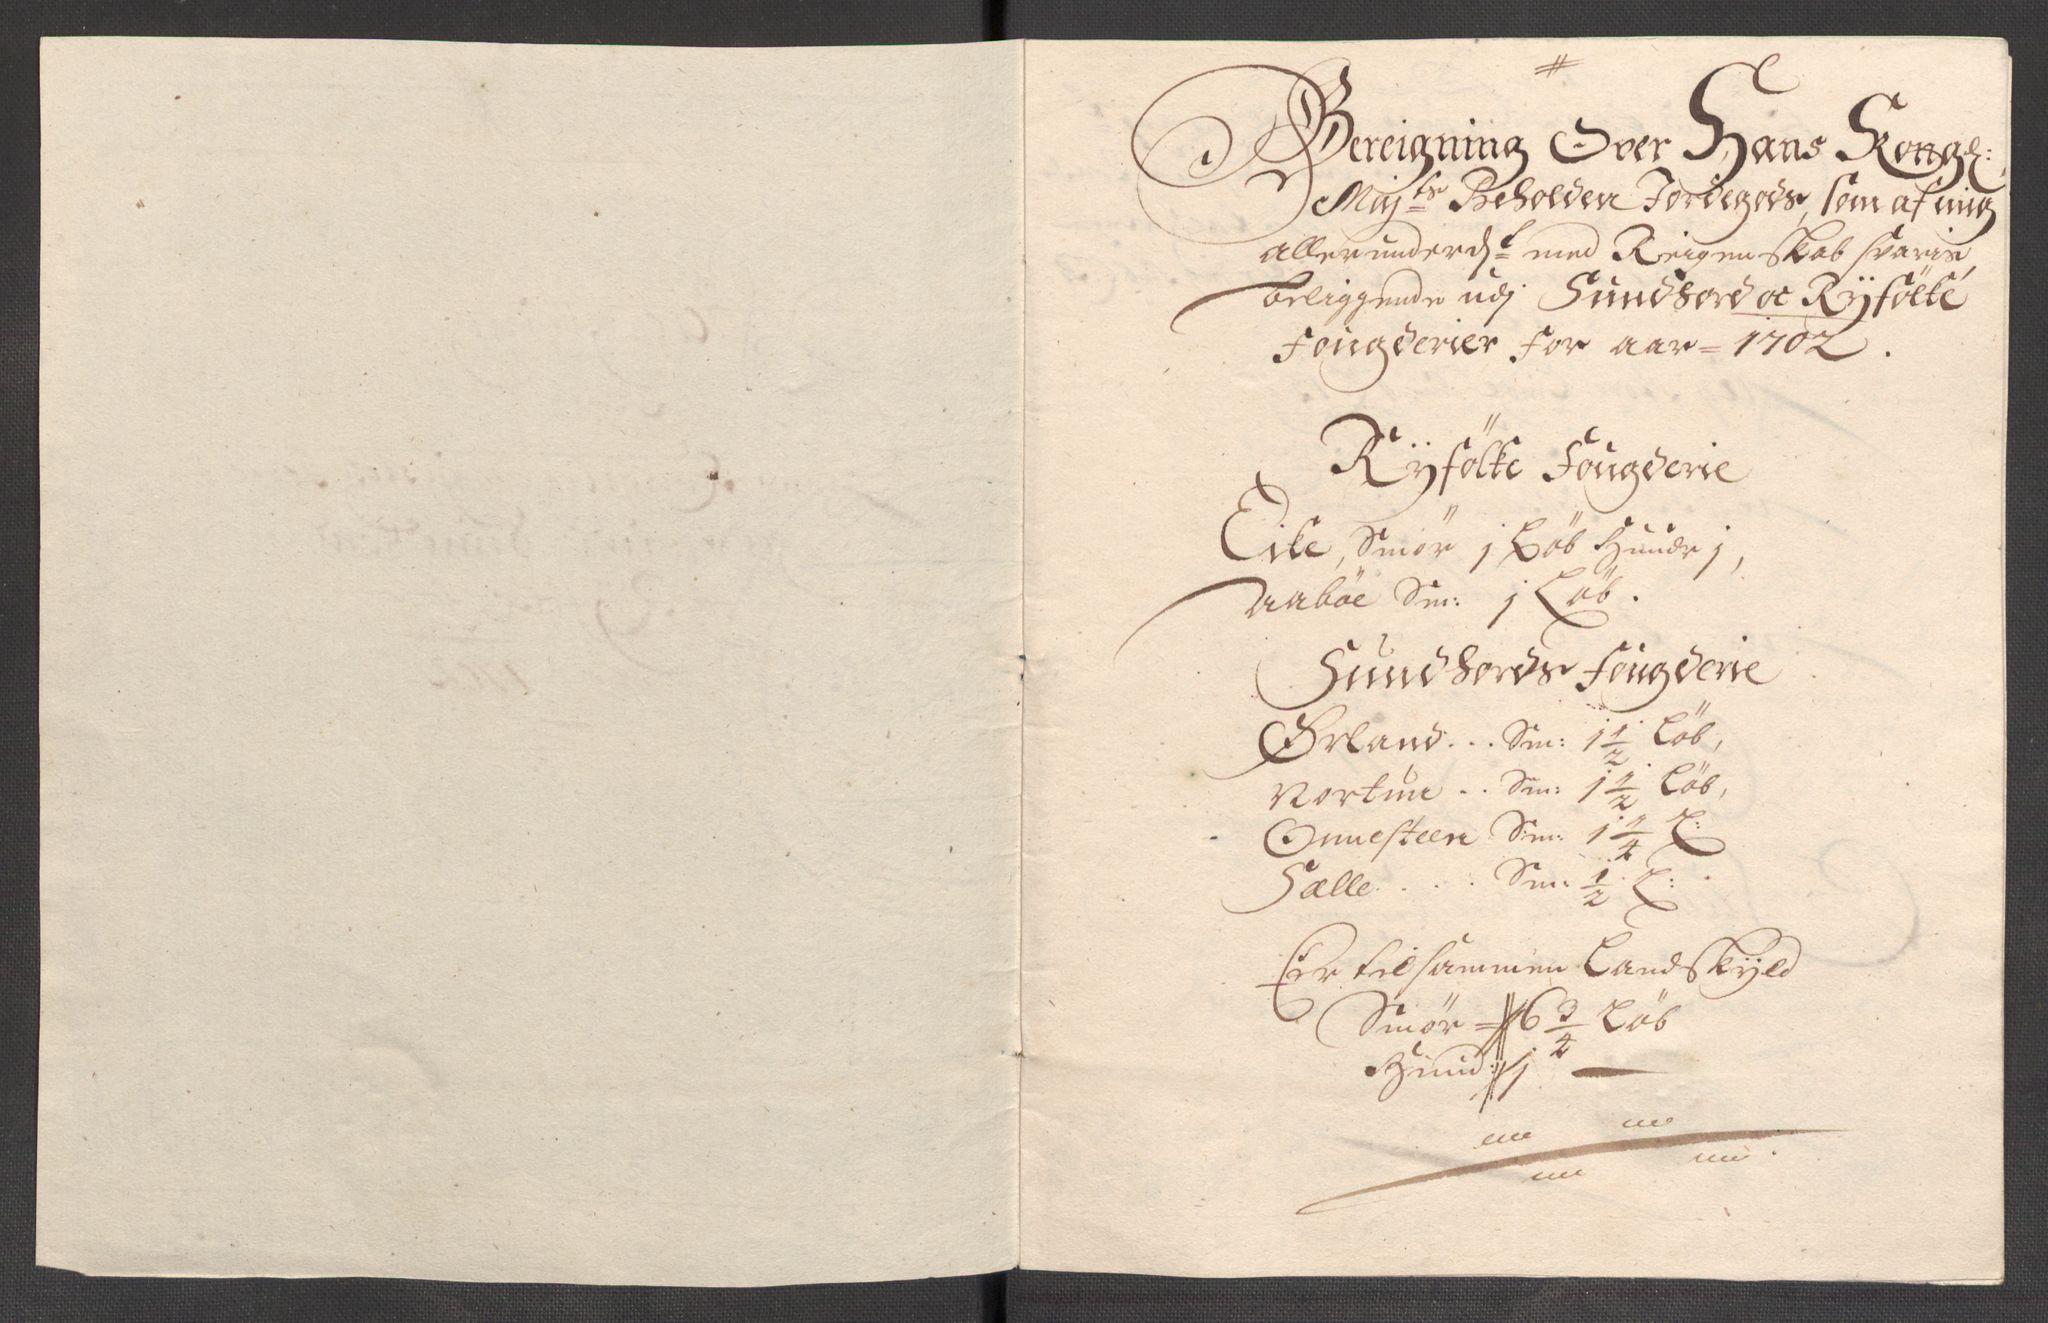 Bereigning Over Hans Kongl:
May:ts Beholden Jordegods, som af mig
allerunderd:t med Reigenskab svaris,
beliggende udj Sundhord oc Ryfölke
Fougderier for aar = 1702.
Ryfölke Fougderie
Eike, Smör j Löb Huude j,
Aaböe Sm: j Löb.
Sundhords Fougderie
Ørland... Sm: 1 1/2 Löb,
Nortun .. Sm: 1 1/2 Löb,
Onnesteen Sm: 1 1/4 L:
Sælle.... Sm: 1/2 L:
Er tilsammen Landskyld
Smör = 6 3/4 Löb
Huud: j —